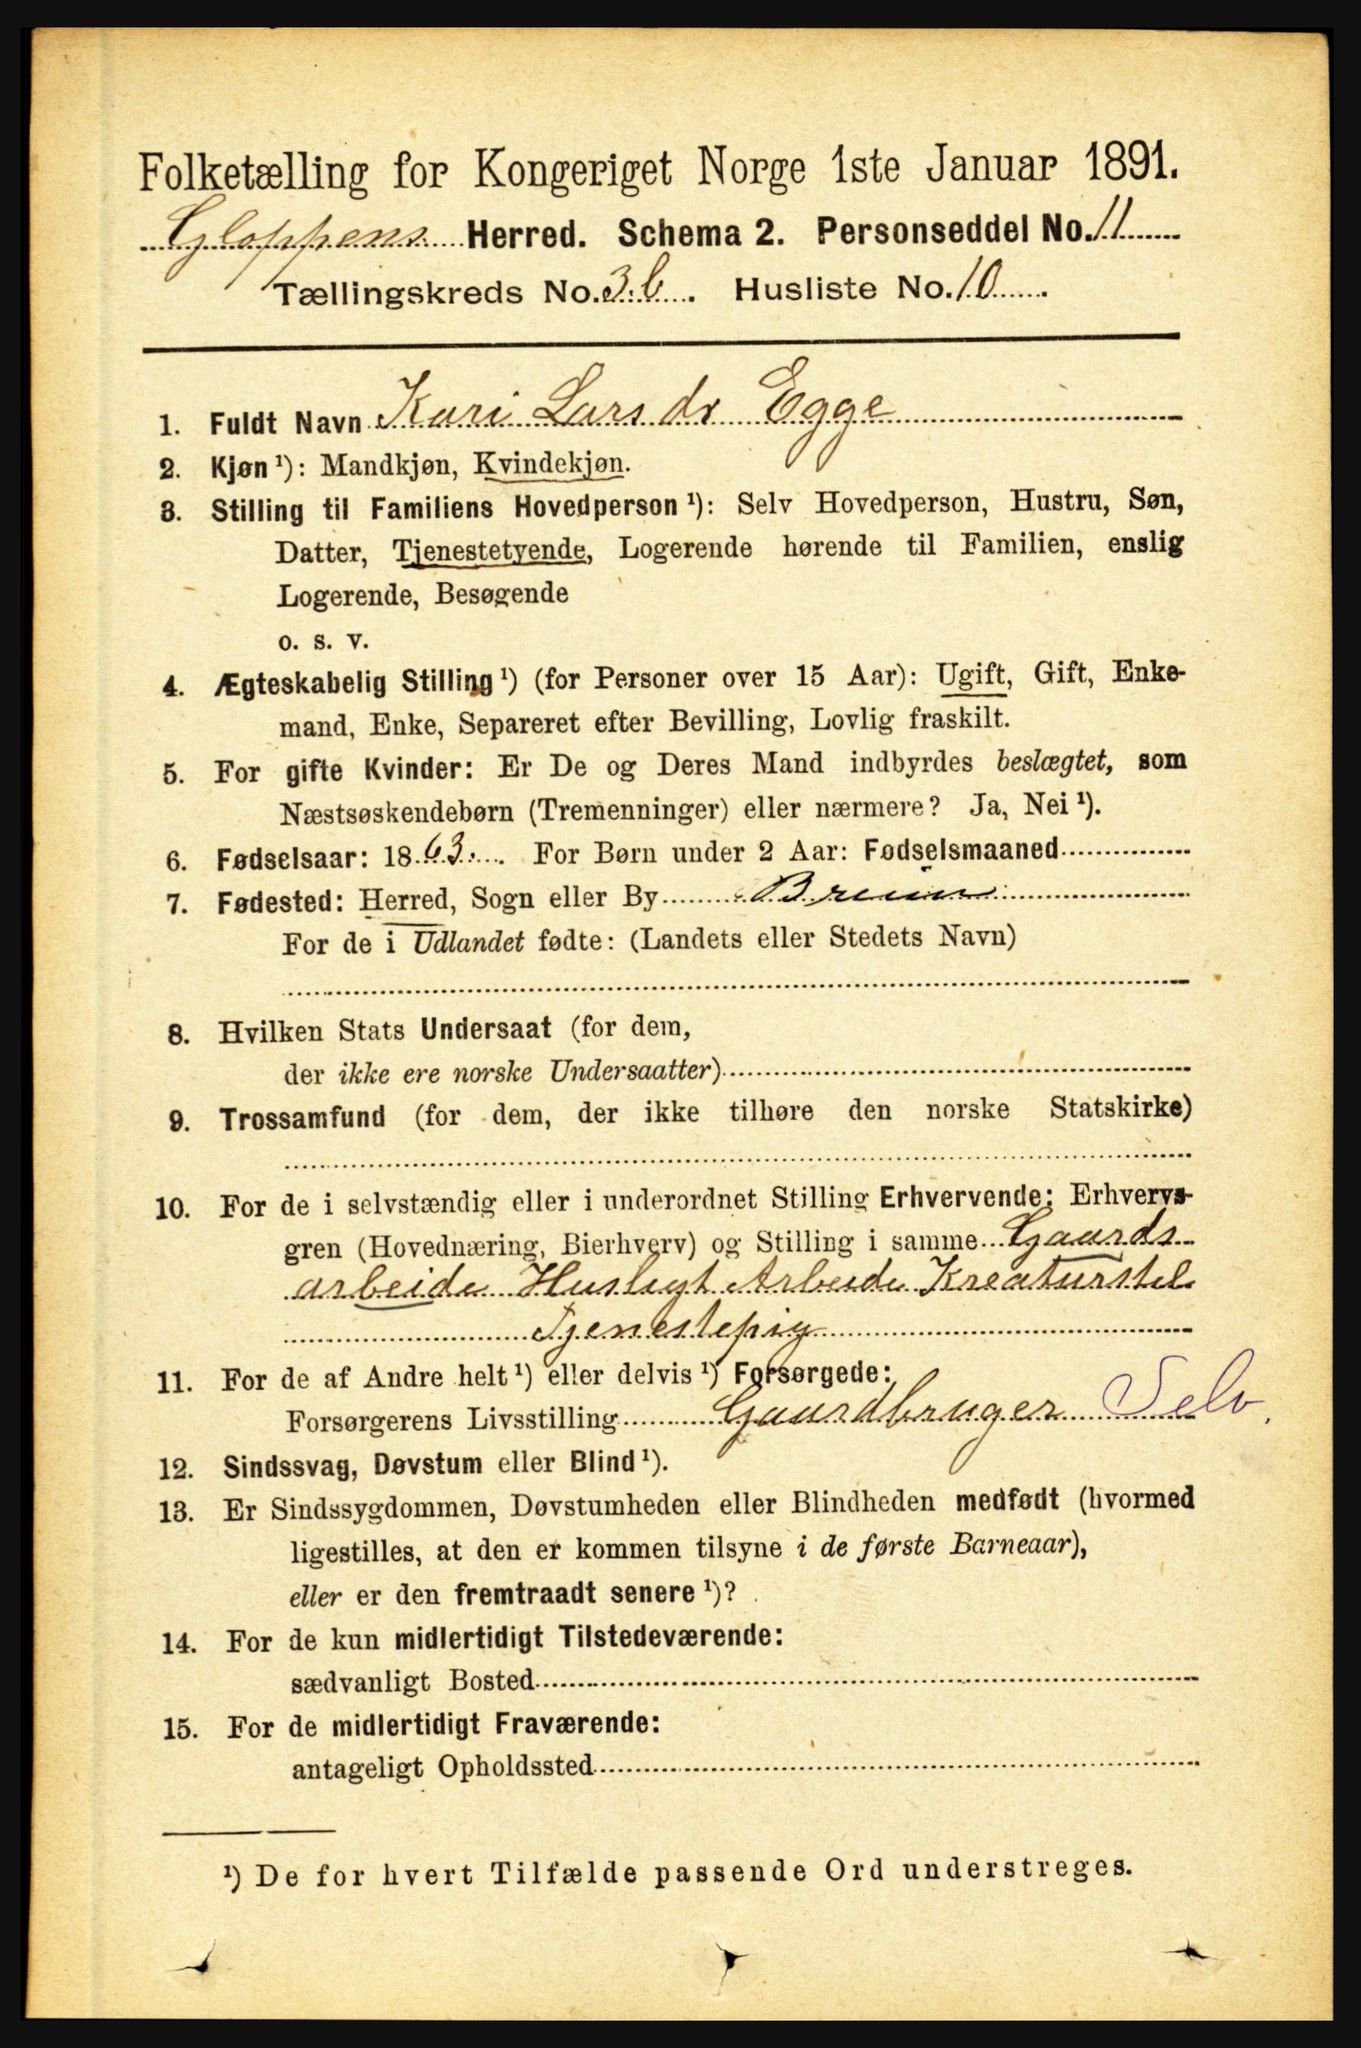 Folketælling for Kongeriget Norge 1ste Januar 1891.
Gloppens Herred. Schema 2. Personseddel No. 11
Tællingskreds No. 3b. Husliste No. 10.
1. Fuldt Navn Kari Larsdr Egge
2. Kjøn ¹): Mandkjøn, Kvindekjøn.
3. Stilling til Familiens Hovedperson ¹): Selv Hovedperson, Hustru, Søn,
Datter, Tjenestetyende, Logerende hørende til Familien, enslig
Logerende, Besøgende
o. s. v.
4. Ægteskabelig Stilling ¹) (for Personer over 15 Aar): Ugift, Gift, Enke-
mand, Enke, Separeret efter Bevilling, Lovlig fraskilt.
5. For gifte Kvinder: Er De og Deres Mand indbyrdes beslægtet, som
Næstsøskendebørn (Tremenninger) eller nærmere? Ja, Nei ¹).
6. Fødselsaar: 1863. For Børn under 2 Aar: Fødselsmaaned
7. Fødested: Herred, Sogn eller By Breim
For de i Udlandet fødte: (Landets eller Stedets Navn)
8. Hvilken Stats Undersaat (for dem,
der ikke ere norske Undersaatter)
9. Trossamfund (for dem, der ikke tilhøre den norske Statskirke)
10. For de i selvstændig eller i underordnet Stilling Erhvervende: Erhvervs-
gren (Hovednæring, Bierhverv) og Stilling i samme Gaards
arbeide Husligt Arbeide Kreaturstel
Tjenestepig
11. For de af Andre helt ¹) eller delvis ¹) Forsørgede:
Forsørgerens Livsstilling Gaardbruger Selv.
12. Sindssvag, Døvstum eller Blind ¹).
13. Er Sindssygdommen, Døvstumheden eller Blindheden medfødt (hvormed
ligestilles, at den er kommen tilsyne i de første Barneaar),
eller er den fremtraadt senere ¹)?
14. For de kun midlertidigt Tilstedeværende:
sædvanligt Bosted
15. For de midlertidigt Fraværende:
antageligt Opholdssted
¹) De for hvert Tilfælde passende Ord understreges.